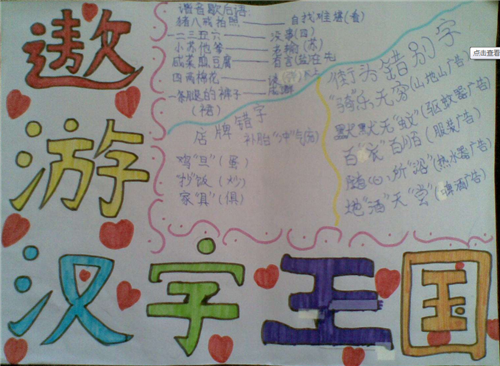 遨
游
汉字王国
谐音歇后语
猪八戒拍照——自找难堪(看)
二三五六——没事(四)
小苏他爹——老输(苏)
咸菜煎豆腐——有言(盐)在先
四两棉花
一条腿的裤子
(裙)
店牌错字
补胎"冲"气(充)
鸡"旦"(蛋)
"抄"饭(炒)
家"具"(俱)
街头错别字
"骑"乐无穷(山地车广告)
默默无"蚊"(驱蚊器广告)
百"衣"百顺(服装广告)
随心所"浴"(热水器广告)
点击查看